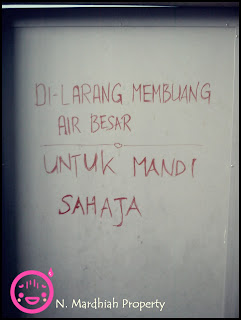 DI-LARANG MEMBUANG
AIR BESAR
UNTUK MANDI
SAHAJA
N. Mardhiah Property